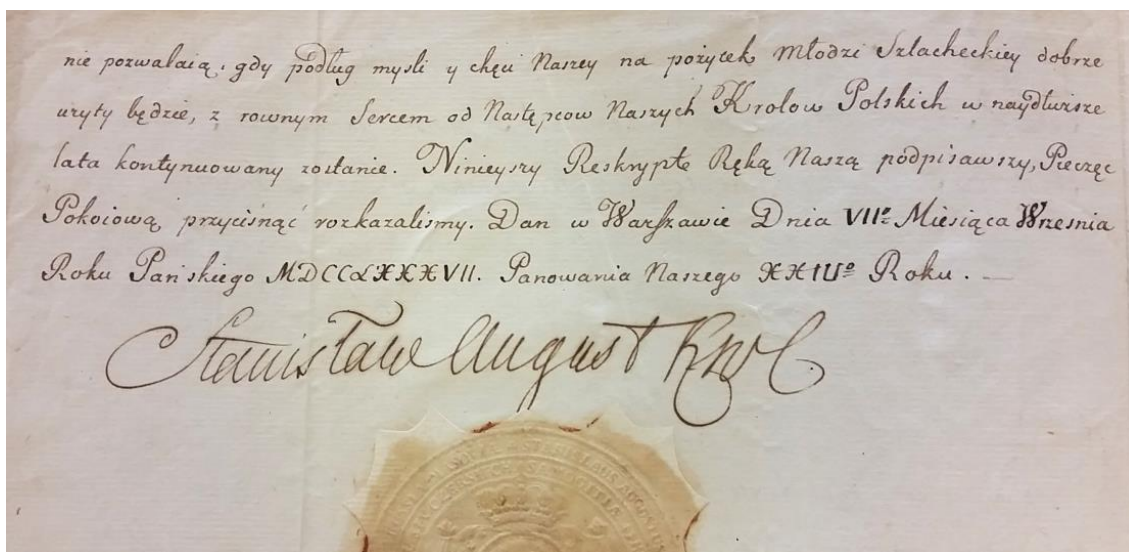 nie pozwalaią, gdy podług mysli y chęci Naszey na pożytek Młodzi Szlacheckiey dobrze
użyty będzie, z rownym Sercem od Następcow Naszych Krolow Polskich w naydłuższe
lata kontynuowany zostanie. Ninieyszy Reskrypt Ręką Naszą podpisawszy, Pieczęć
Pokoiową przycisnąć rozkazalismy. Dan w Warszawie Dnia VIIº Miesiąca Wrzesnia
Roku Pańskiego MDCCLXXXVII. Panowania Naszego XXIIIº Roku.
Stanisław August Krol